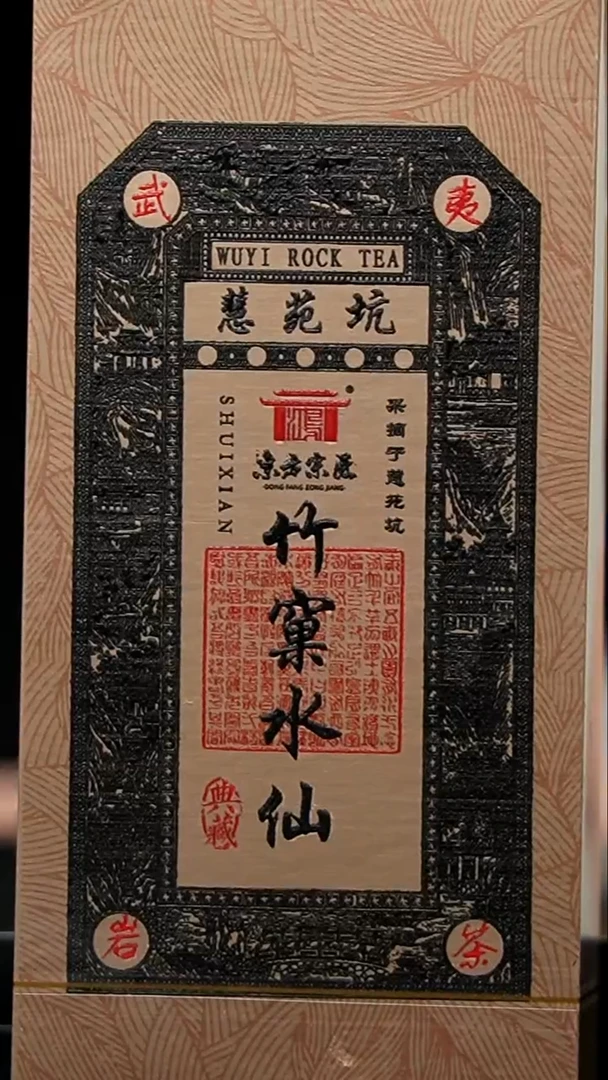 武 夷
WUYI ROCK TEA
慧苑坑
采摘于慧苑坑
SHUIXIAN
东方宗匠
DONG FANG ZONG JIANG
竹窠水仙
典藏
岩 茶